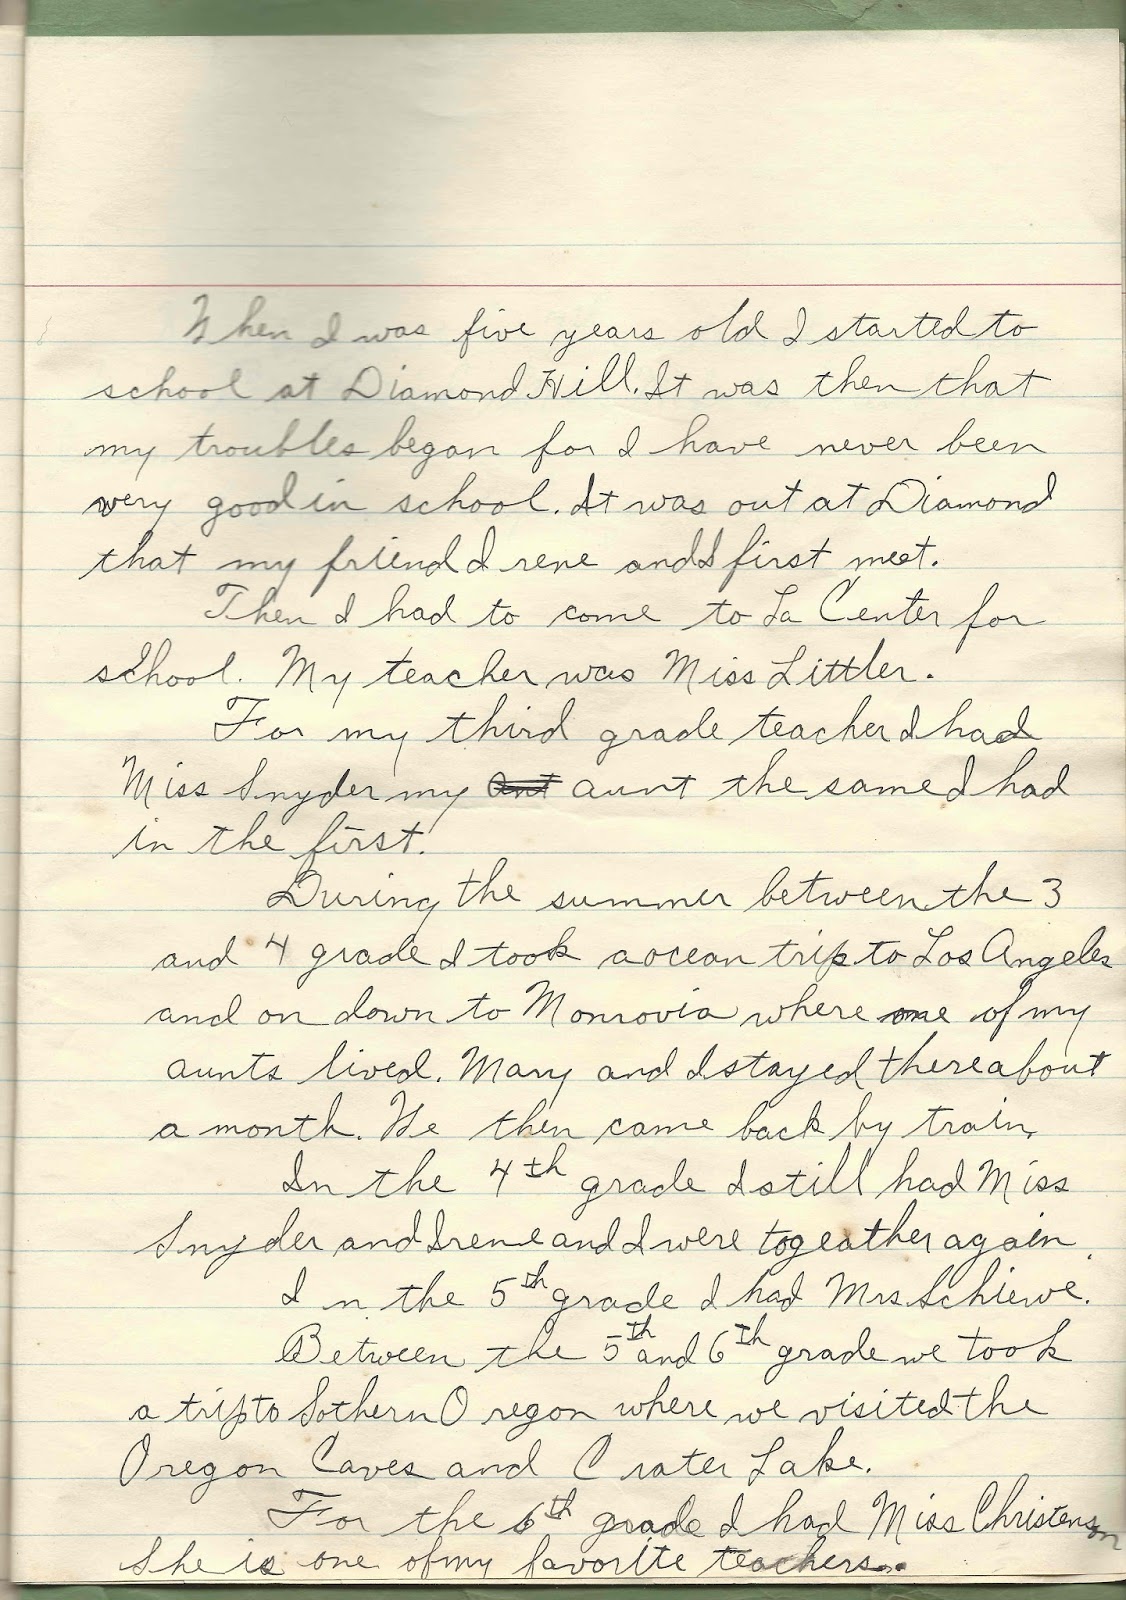 When I was five years old I started to
school at Diamond Hill. It was then that
my troubles began for I have never been
very good in school. It was out at Diamond
that my friend Irene and I first meet.
Then I had to come to La Center for
school. My teacher was Miss Littler.
For my third grade teacher I had
Miss Snyder my ant aunt the same I had
in the first.
During the summer between the 3
and 4 grade I took a ocean trip to Los Angeles
and on down to Monrovia where one of my
aunts lived. Mary and I stayed there about
a month. We then came back by train.
In the 4th grade I still had Miss
Snyder and Irene and I were togeather again.
In the 5th grade I had Mrs Schiewe.
Between the 5th and 6th grade we took
a trip to Sothern Oregon where we visited the
Oregon Caves and Crater Lake.
For the 6th grade I had Miss Christenson
She is one of my favorite teachers.